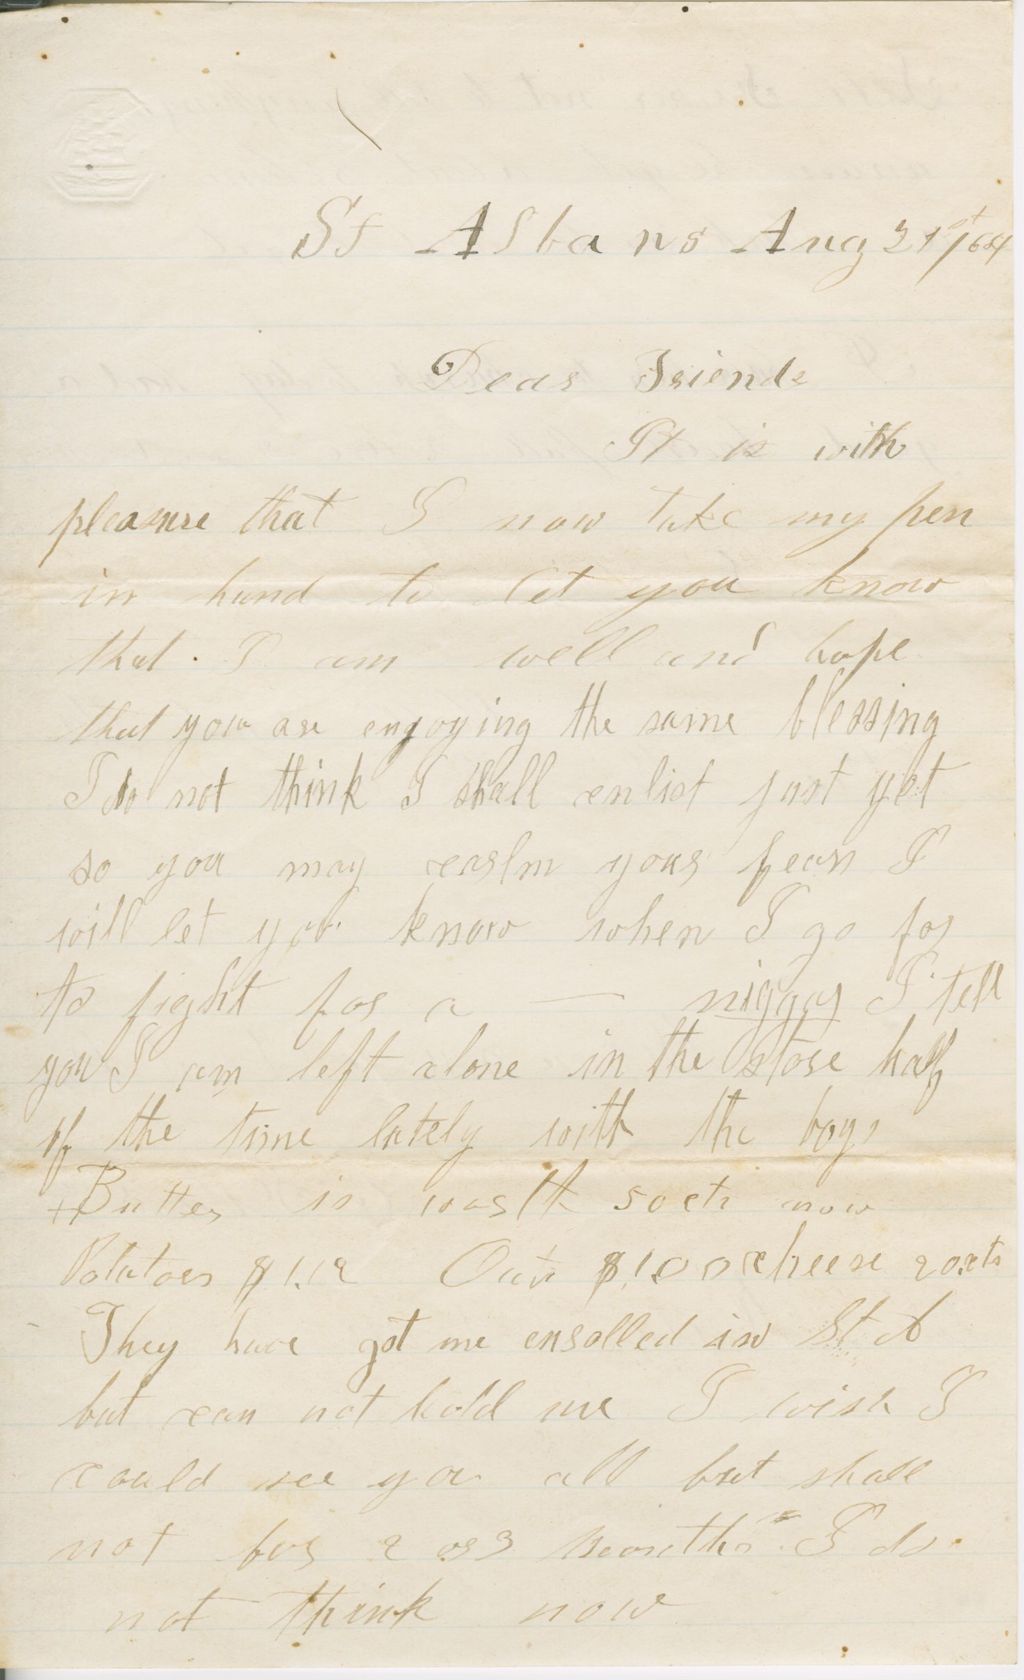 St Albans Aug 21st/64
Dear Friends
It is with
pleasure that I now take my pen
in hand to let you know
that I am well and hope
that you are enjoying the same blessing
I do not think I shall enlist just yet
so you may calm your fears I
will let you know when I go for
to fight for a — niggar I tell
you I am left alone in the store half
of the time lately with the boys
+Butter is worth 50cts now
Potatoes $1.12 Oats $1.00 cheese 20cts
They have got me enrolled in St A
but can not hold me I wish I
could see you all but shall
not for 2 or 3 months I do
not think now